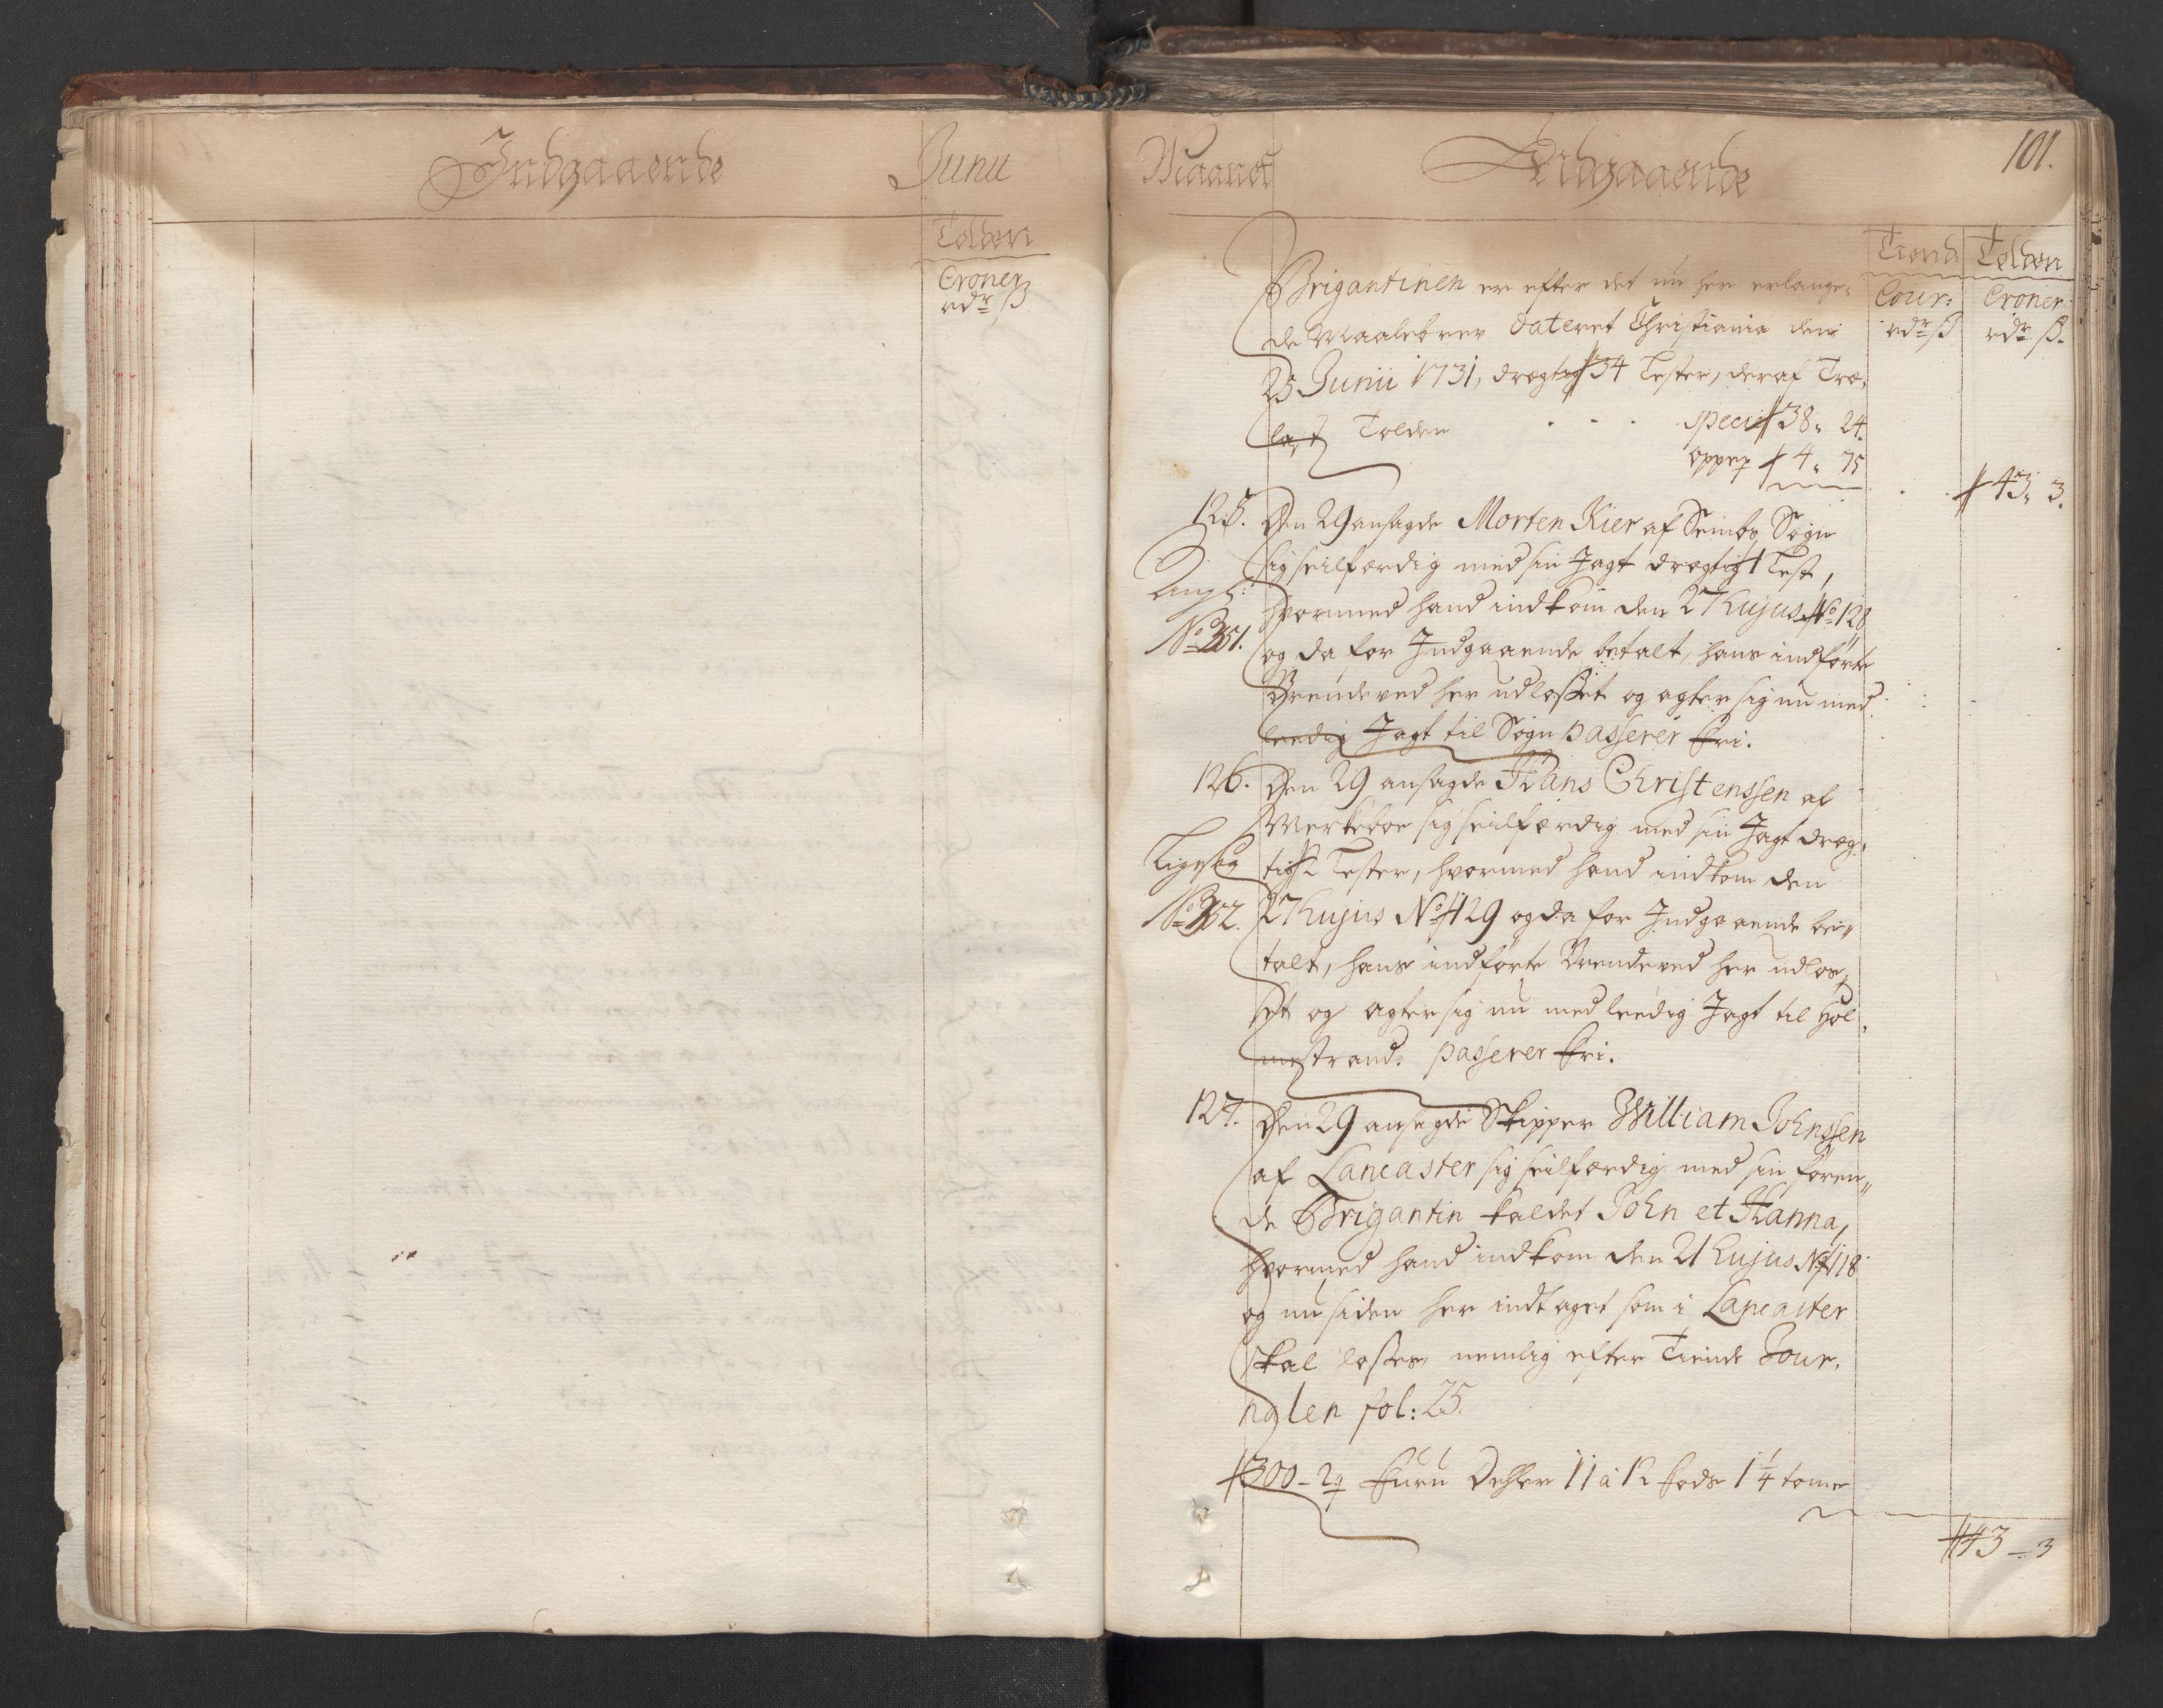 Indgaaende Junii
Tolden
Croner
rdr ß
Maanet Udgaaende 101.
Tiend: Tolden
Cour: Croner
rdr ß rdr ß.
Brigantinen er efter det nu her erlange-
de Maalebrev dateret Christiania den
25 Junii 1731, drægtig 34 Lester, deraf Træ-
last Tolden - - - specie 38" 24.
oppep 4" 75
43" 3.
125. Den 29 ansagde Morten Kier af Sembs Sogn
sig seilfærdig med sin Jagt drægtig 1 Lest,
hvormed hand indkom den 27 hujus No 128
No 351. og da for Indgaaende betalt, hans indførte
Brendeved her udlosset og agter sig nu med
leedig Jagt til Sogn passerer fri.
126. Den 29 ansagde Hans Christenssen af
sig seilfærdig med sin Jagt dræg-
tig 2 Lester, hvormed hand indkom den
No 352. 27 hujus No 129 og da for Indgaaende be-
talt, hans indførte Brendeved her udlos-
set og agter sig nu med leedig Jagt til Hol-
mestrand: passerer fri.
127. Den 29 ansagde Skipper William Johnssen
af Lancaster sig seilfærdig med sin føren-
de Brigantin kaldet John et Hanna,
hvormed hand indkom den 21 hujus No 118
og nu siden her indtaget som i Lancaster
skal losses, nemlig efter Tiende Jour-
nalen fol: 25.
300 - 29 Furu Dehler 11 a 12 Fods 1 1/4 tomme
43 - 3